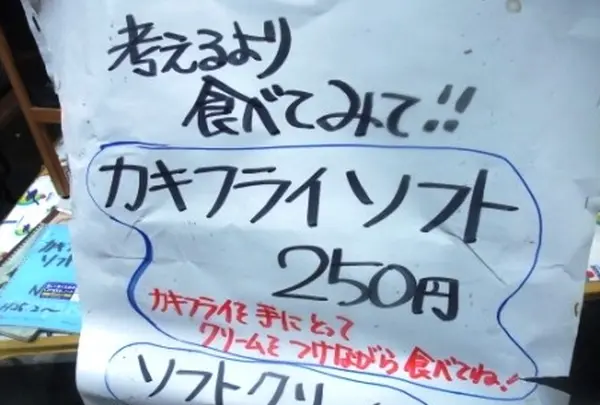 考えるより
食べてみて!!
カキフライソフト
250円
カキフライを手にとって
クリームをつけながら食べてね!
ソフトクリ
カキフ
ソフ